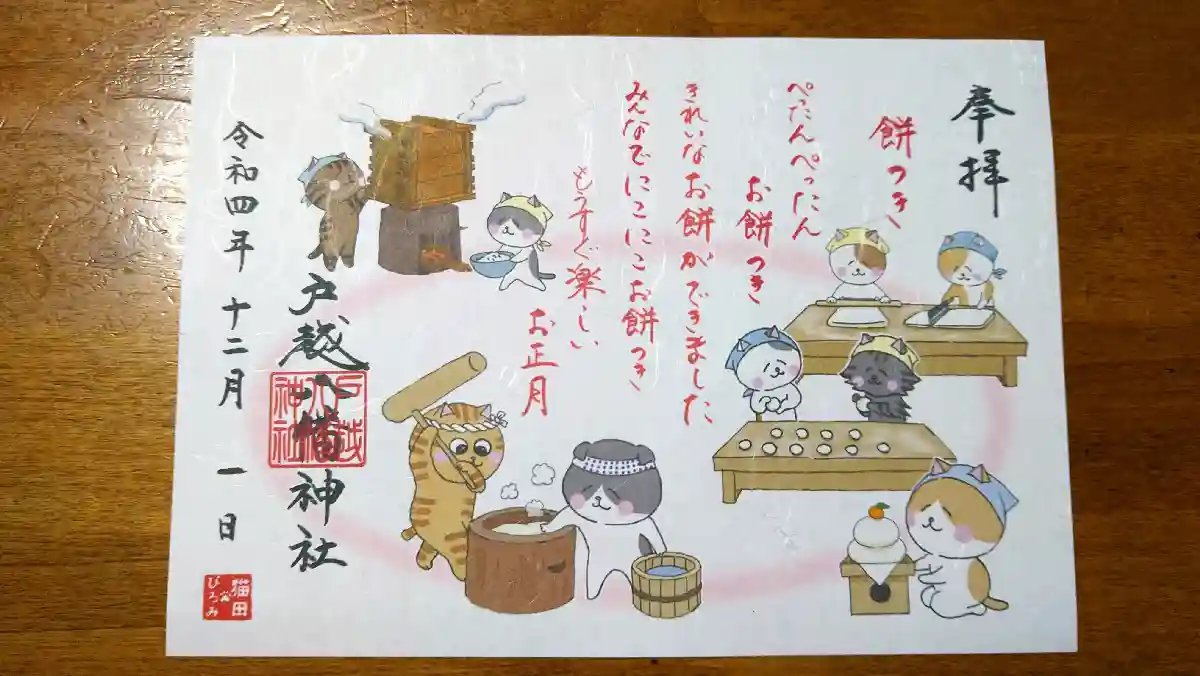 奉拝
餅つき
ぺたんぺったん
お餅つき
きれいなお餅ができました
みんなでにこにこお餅つき
もうすぐ楽しい
お正月
戸越八幡神社
戸越八幡神社
令和四年 十二月 一日
猫田
びろみ